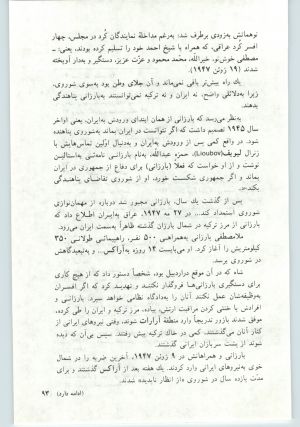 توهماتش بزودی برطرف شد: به‌رغم مداخلهٔ نمایندگان کرد در مجلس، چهار
افسر کرد عراقی، که همراه با شیخ احمد خود را تسلیم کرده بودند، یعنی: ـ
مصطفی خوشنو، خیرالله، محمد محمود و عزت عزیز، دستگیر و به‌دار آویخته
شدند (۱۹ ژوئن ۱۹۴۷).
یك راه بیش‌تر باقی نمی‌ماند و آن جلای وطن بود به‌سوی شوروی،
زیرا به‌دلائلی واضح، نه ایران و نه ترکیه نمی‌توانستند به‌بارزانی پناهندگی
بدهند.
به‌نظر می‌رسد که بارزانی از همان ابتدای ورودش به‌ایران، یعنی اواخر
سال ۱۹۴۵ تصمیم داشت که اگر نتوانست در ایران بماند به‌شوروی پناهنده
شود. در واقع کمی پس از ورودش به‌ایران و به‌دنبال اولین تماس‌هایش با
ژنرال لیوبف (Lioubov)، حمزه عبدالله، به‌نام بارزانی نامه‌ئی به‌استالین
نوشت و از او خواست که فعلاً (بارزانی) برای دفاع از جمهوری در ایران
بماند و اگر جمهوری شکست خورد، او از شوروی تقاضای پناهندگی
بکند...
پس از گذشت یك سال، بارزانی مجبور شد دوباره از مهمان‌نوازی
شوروی استمداد کند... در ۲۷ مه ۱۹۴۷، عراق به‌ایران اطلاع داد که
بارزانی از مرز ترکیه در شمال بارزان گذشته ظاهراً به‌سمت ایران می‌رود.
ملا‌مصطفی بارزانی به‌همراهی ۵۰۰ نفر، راهپیمائی طولانی ۳۵۰
کیلومتریش را آغاز کرد. او می‌بایست ۱۴ روزه به‌آراکس... و به‌تبعیدگاهش
در شوروی برسد.
شاه که در آن موقع در اردبیل بود، شخصاً دستور داد که از هیچ کاری
برای دستگیری بارزانی‌ها فروگذار نکنند و تهدید کرد که اگر افسران
به‌وظیفه‌شان عمل نکنند آنان را به‌دادگاه نظامی خواهد سپرد. بارزانی و
افرادش با خنثی کردن مراقبت ارتش، پیاده، مرز ترکیه و ایران را طی کرده،
موفق شدند بازور تدریجاً وارد منطقه آرارات شوند، وقتی نیروهای ایرانی از
کنار آنان می‌گذشتند، کمی در خاك ترکیه پیش رفتند. سپس بی‌آن که دیده
شوند از پشت سربازان ایرانی گذشتند.
بارزانی و همراهانش در ۹ ژوئن ۱۹۴۷، آخرین ضربه را در شمال
خوی به‌نیروهای ایرانی وارد کردند. یك هفته بعد از آراکس گذشتند و برای
مدت یازده سال در شوروی «از انظار ناپدید» شدند.
(ادامه دارد) ۹۳